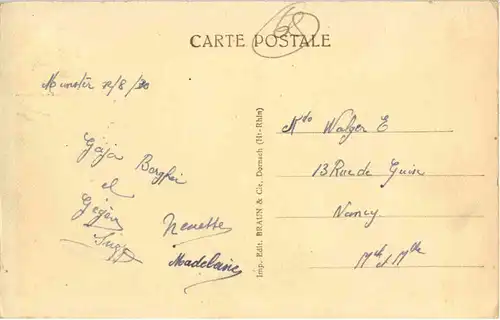 68
CARTE POSTALE
Munster 12/8/30
Gaja Borghei
el
Nenette
Madelaine
Imp. Edit. BRAUN & Cie, Dornach (Ht-Rhin)
Walzer E
13 Rue de Guise
Nancy
Mth et Mlle